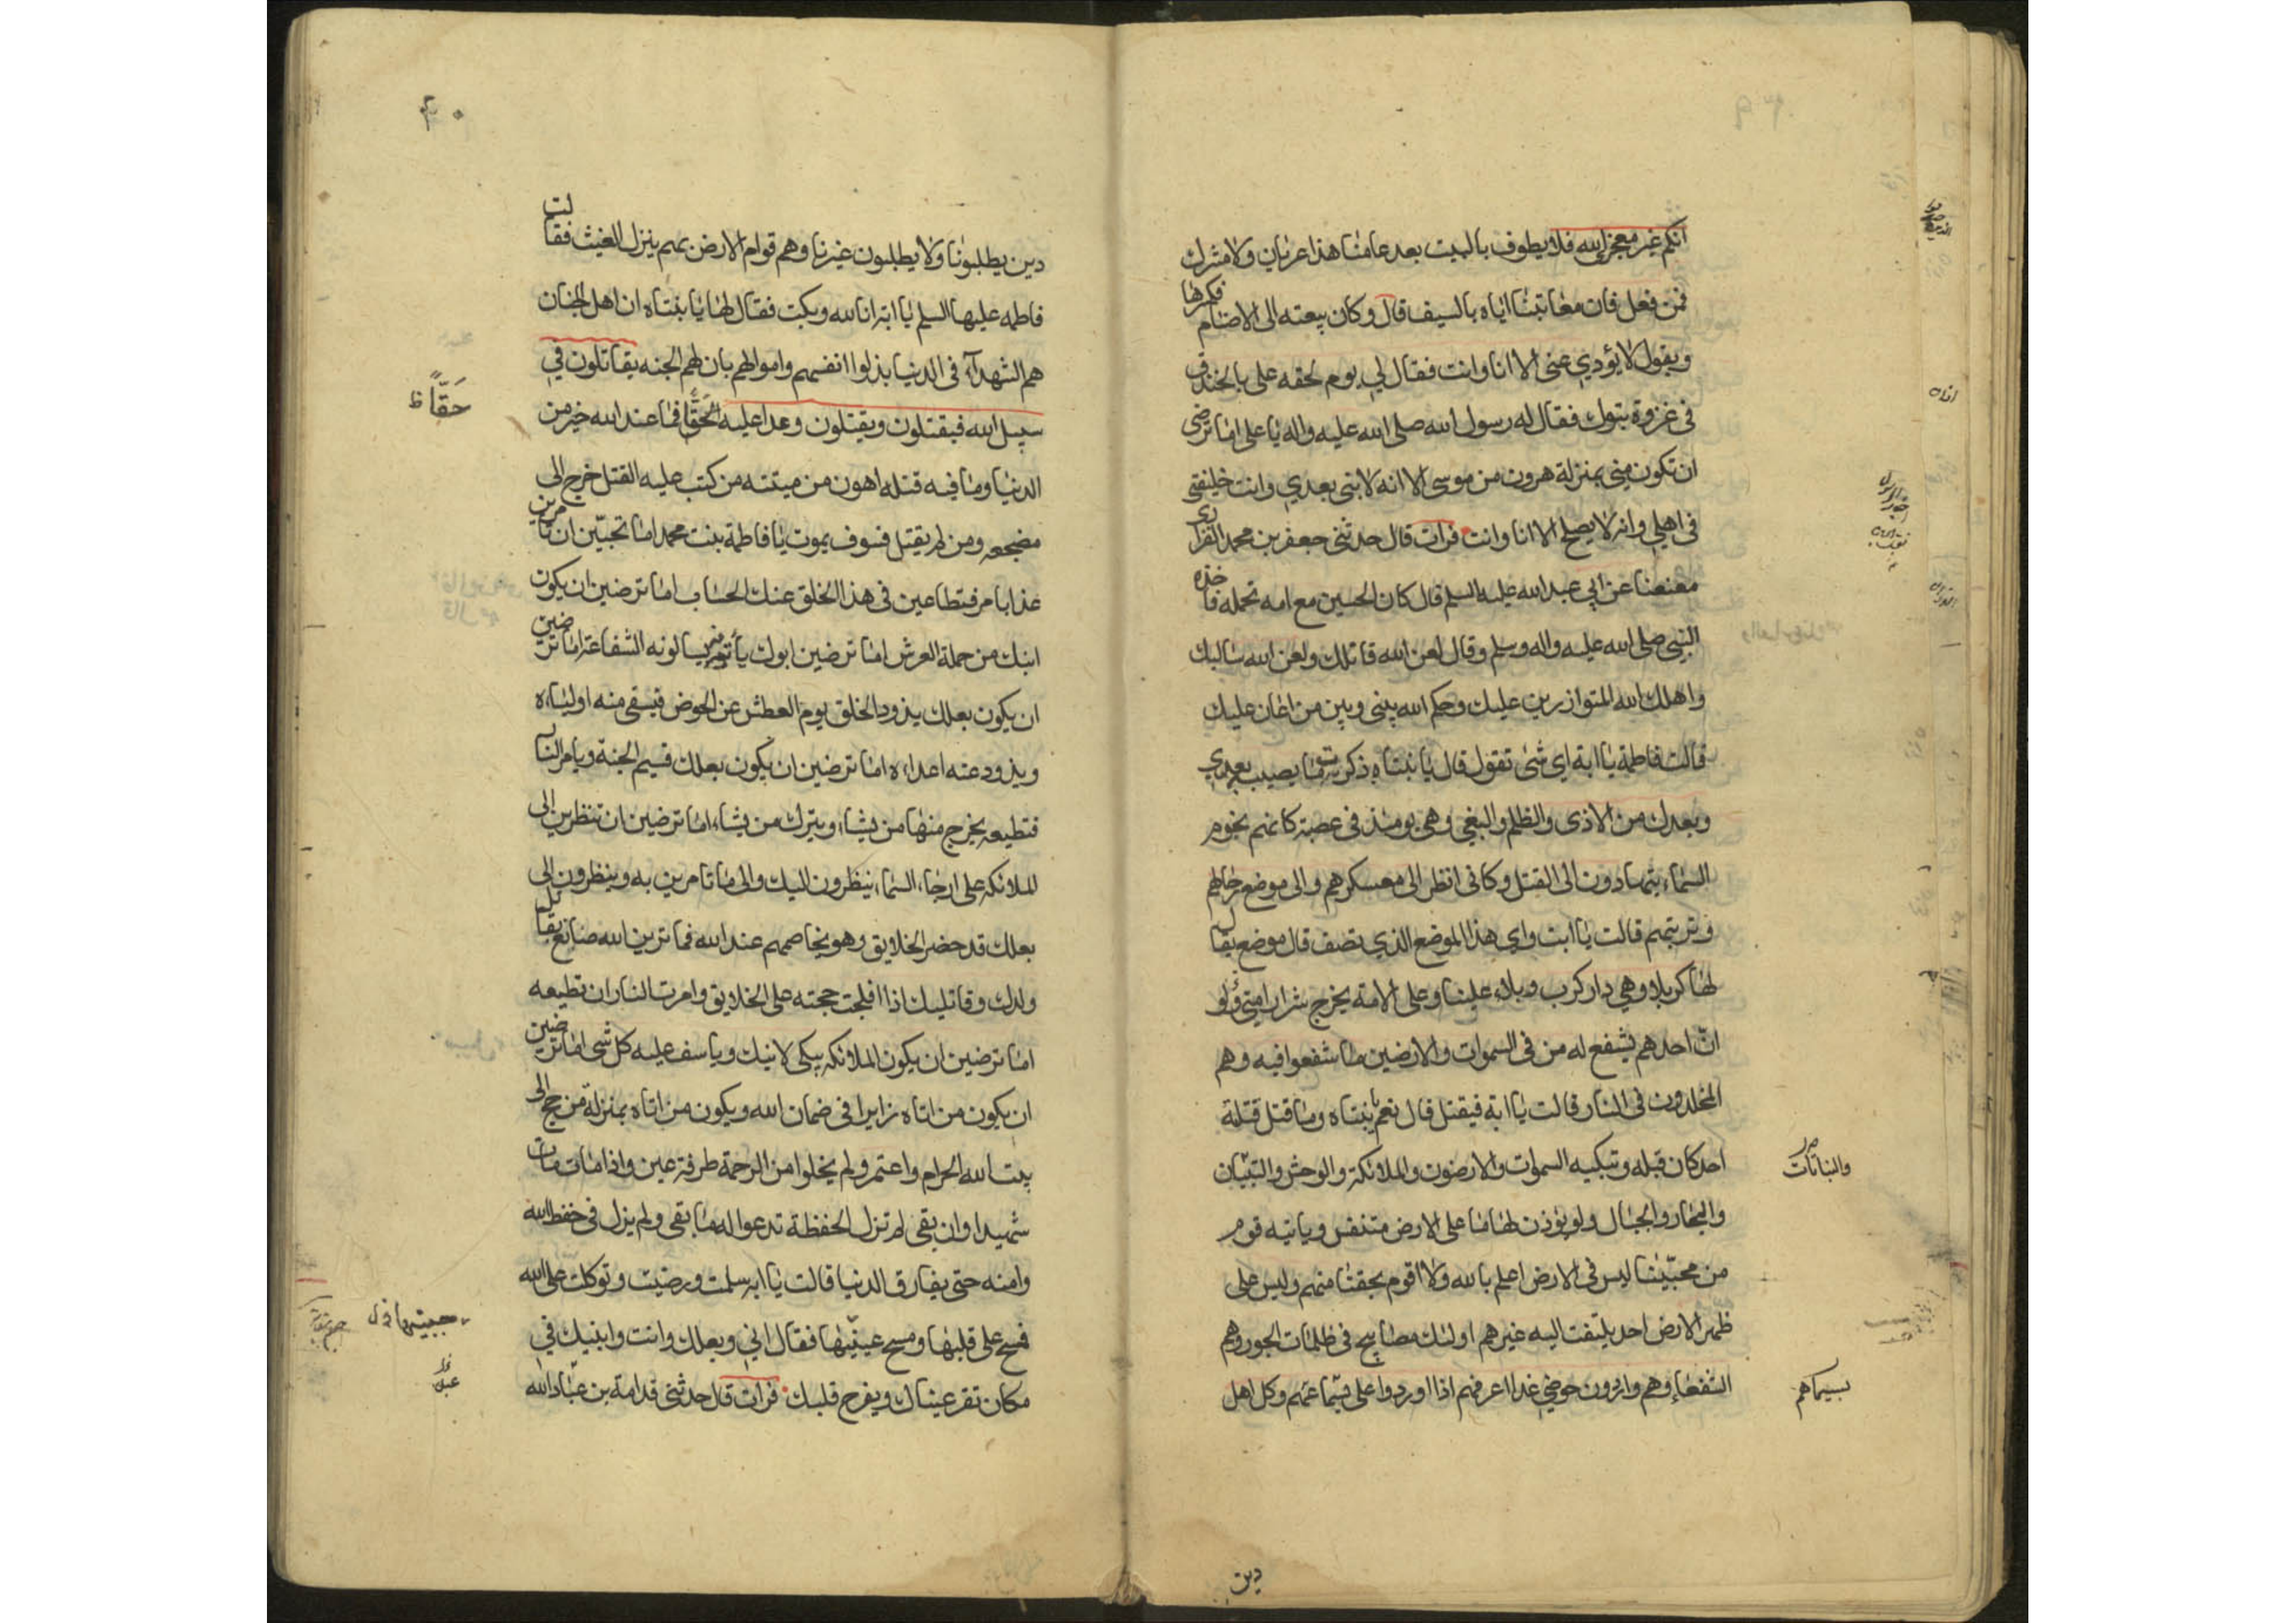 انكم غير معجزي الله فلا يطوف بالبيت بعد عامنا هذا عريان ولا مشرك
فمن فعل فان معاتبتنا اياه بالسيف قال وكان يبعثه الى الاصنام فيكسرها
ويقول لا يؤدي عنى الا انا وانت فقال لي يوم لحقه على بالخندق
فى غزوة تبوك فقال له رسول الله صلى الله عليه واله يا على اما ترضى
ان تكون مني بمنزلة هرون من موسى الا انه لا نبى بعدي وانت خليفتي
فى اهلي وانه لا يصلح الا انا وانت فرات قال حدثنى جعفر بن محمد الفزارى
معنعنا عن ابي عبد الله عليه السلم قال كان الحسين مع امه تحمله فاخذه
النبي صلى الله عليه واله وسلم وقال لعن الله قاتلك ولعن الله سالبك
واهلك الله المتوازرين عليك وحكم الله بينى وبين من اعان عليك
قالت فاطمة يا ابة اى شئ تقول قال يا بنتاه ذكرت ما يصيب بعدي
وبعدك من الاذى والظلم والبغي وهو يومئذ فى عصبة كانهم نجوم
السماء يتهادون الى القتل وكانى انظر الى معسكرهم والى موضع رحالهم
وتربتهم قالت يا ابت واي هذا الموضع الذي تصف قال موضع يقال
لها كربلا وهي دار كرب وبلاء علينا وعلى الامة يخرج شرار امتي ولو
ان احدهم يشفع له من فى السموات والارضين ما شفعوا فيه وهم
المخلدون فى النار قالت يا ابة فيقتل قال نعم يا بنتاه وما قتل قتلة
احد كان قبله وتبكيه السموات والارضون والملائكة والوحش والتبيان
والبحار والجبال ولو يؤذن لها ما على الارض متنفس وياتيه قوم
من محبينا ليس فى الارض اعلم بالله ولا اقوم بحقنا منهم وليس على
ظهر الارض احد يلتفت اليه غيرهم اولئك مصابيح فى ظلمات الجور وهم
الشفعاء وهم واردون حوضي غدا اعرفهم اذا وردوا على بسيماهم وكل اهل
والنباتات
بسيماهم
دين
۴۰
دين يطلبونا ولا يطلبون غيرنا وهم قوام الارض بهم ينزل الغيث فقالت
فاطمه عليها السلم يا ابه انا لله وبكت فقال لها يا بنتاه ان اهل الجنان
هم الشهداء فى الدنيا بذلوا انفسهم واموالهم بان لهم الجنه يقاتلون في
سبيل الله فيقتلون ويقتلون وعدا عليه الحق فما عند الله خير من
الدنيا وما فيه قتله اهون من ميتته من كتب عليه القتل خرج الى
مضجعه ومن لم يقتل فسوف يموت يا فاطمة بنت محمد اما تحبين ان تامرين
غدا بامر فتطاعين فى هذا الخلق عند الحساب اما ترضين ان يكون
ابنك من حملة العرش اما ترضين ابوك ياتونه يسالونه الشفاعة اما ترضين
ان يكون بعلك يذود الخلق يوم العطش عن الحوض فيسقى منه اولياءه
ويذود عنه اعداءه اما ترضين ان يكون بعلك قسيم الجنة ويامر النار
فتطيعه يخرج منها من يشاء ويترك من يشاء اما ترضين ان تنظرين الى
الملائكة على ارجاء السماء ينظرون اليك والى ما تامرين به وينظرون الى
بعلك قد حضر الخلايق وهو يخاصمهم عند الله فما ترين الله صانع بقاتل
ولدك وقاتليك اذا افلجت حجته على الخلايق وامرت النار ان تطيعه
اما ترضين ان يكون الملائكه يبكى لابنك وياسف عليه كل شئ اما ترضين
ان يكون من اتاه زايرا فى ضمان الله ويكون من اتاه بمنزلة من حج الى
بيت الله الحرام واعتمر ولم يخلوا من الرحمة طرفة عين واذا مات مات
شهيدا وان بقى لم تزل الحفظة تدعوا له ما بقى ولم يزل فى حفظ الله
وامنه حتى يفارق الدنيا قالت يا ابه سلمت ورضيت وتوكلت على الله
فمسح على قلبها ومسح عينيها فقال اني وبعلك وانت وابنيك في
مكان تقر عيناك ويفرح قلبك فرات قال حدثنى قدامة بن عبد الله
حقا ظ